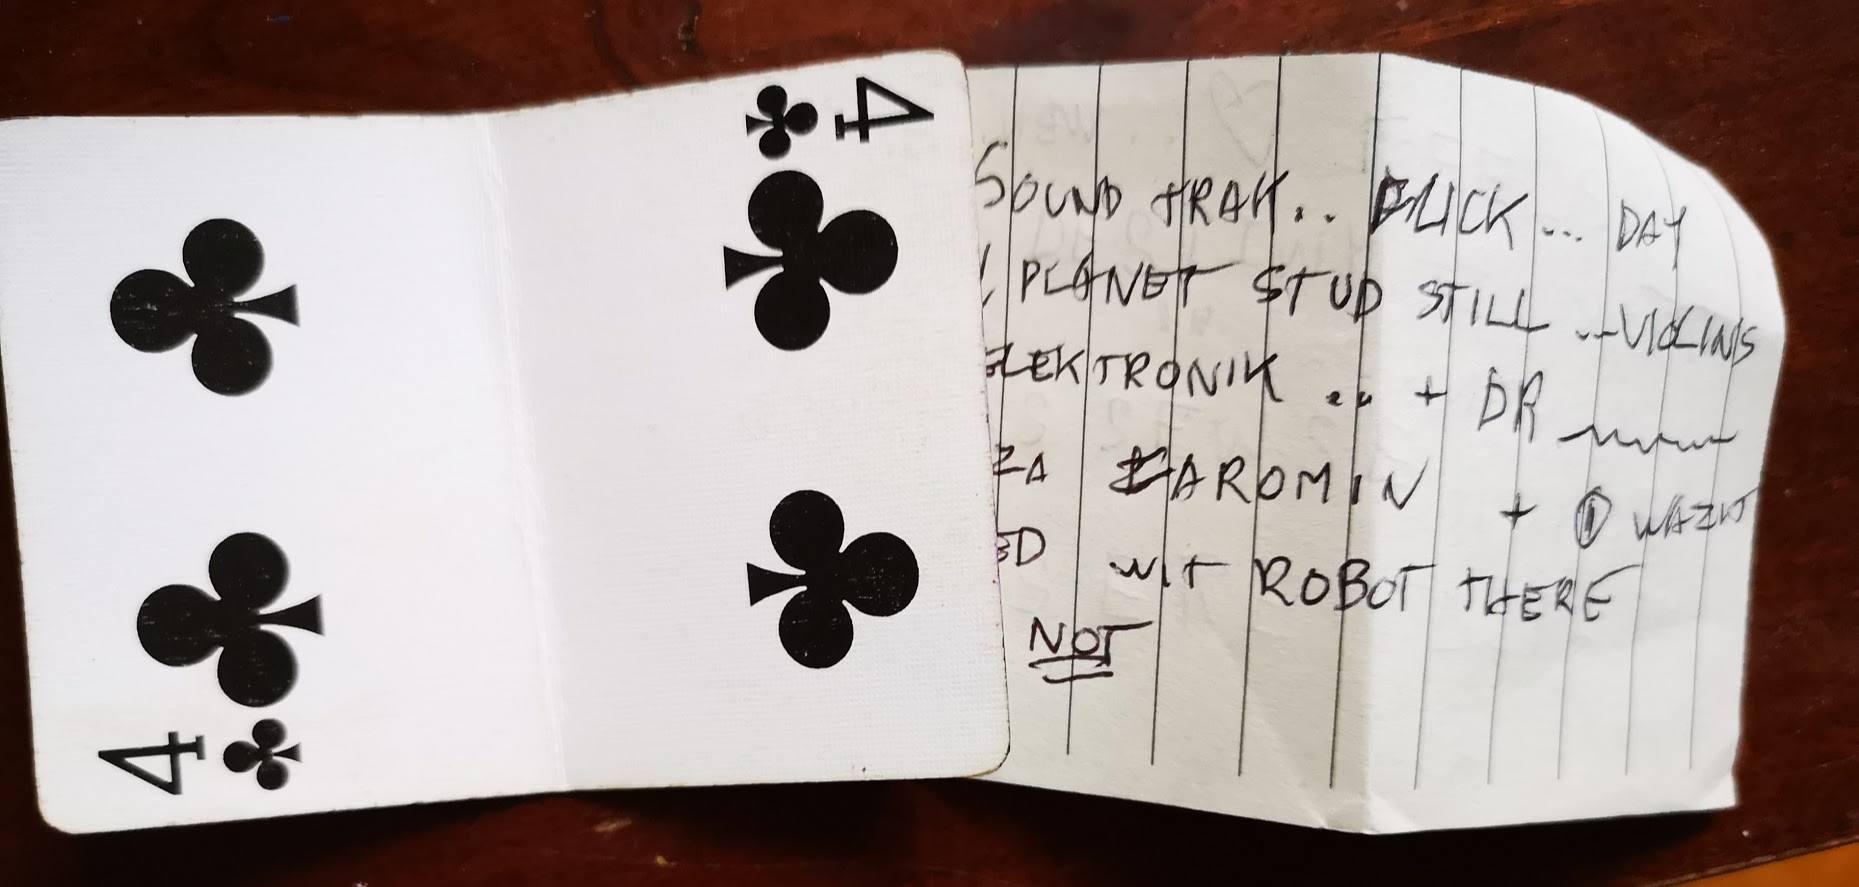 4
4
SOUND TRAK.. BLICK... DAY
PLANET STUD STILL ...VIOLINS
ELEKTRONIK .. + DR
ZA ZAROMIN + WAZKT
ED WIT ROBOT THERE
NOT